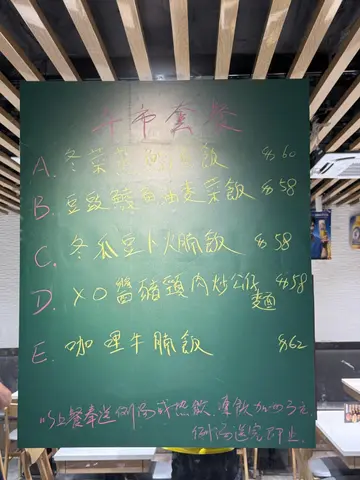 午市套餐
A. 冬菜 飯 $60
B. 豆豉鯪魚油麦菜飯 $58
C. 冬瓜豆卜火腩飯 $58
D. XO醬豬頸肉炒公仔麵 $58
E. 咖哩牛腩飯 $62
以上餐奉送例湯或热飲、凍飲加四3元
例湯送完即止